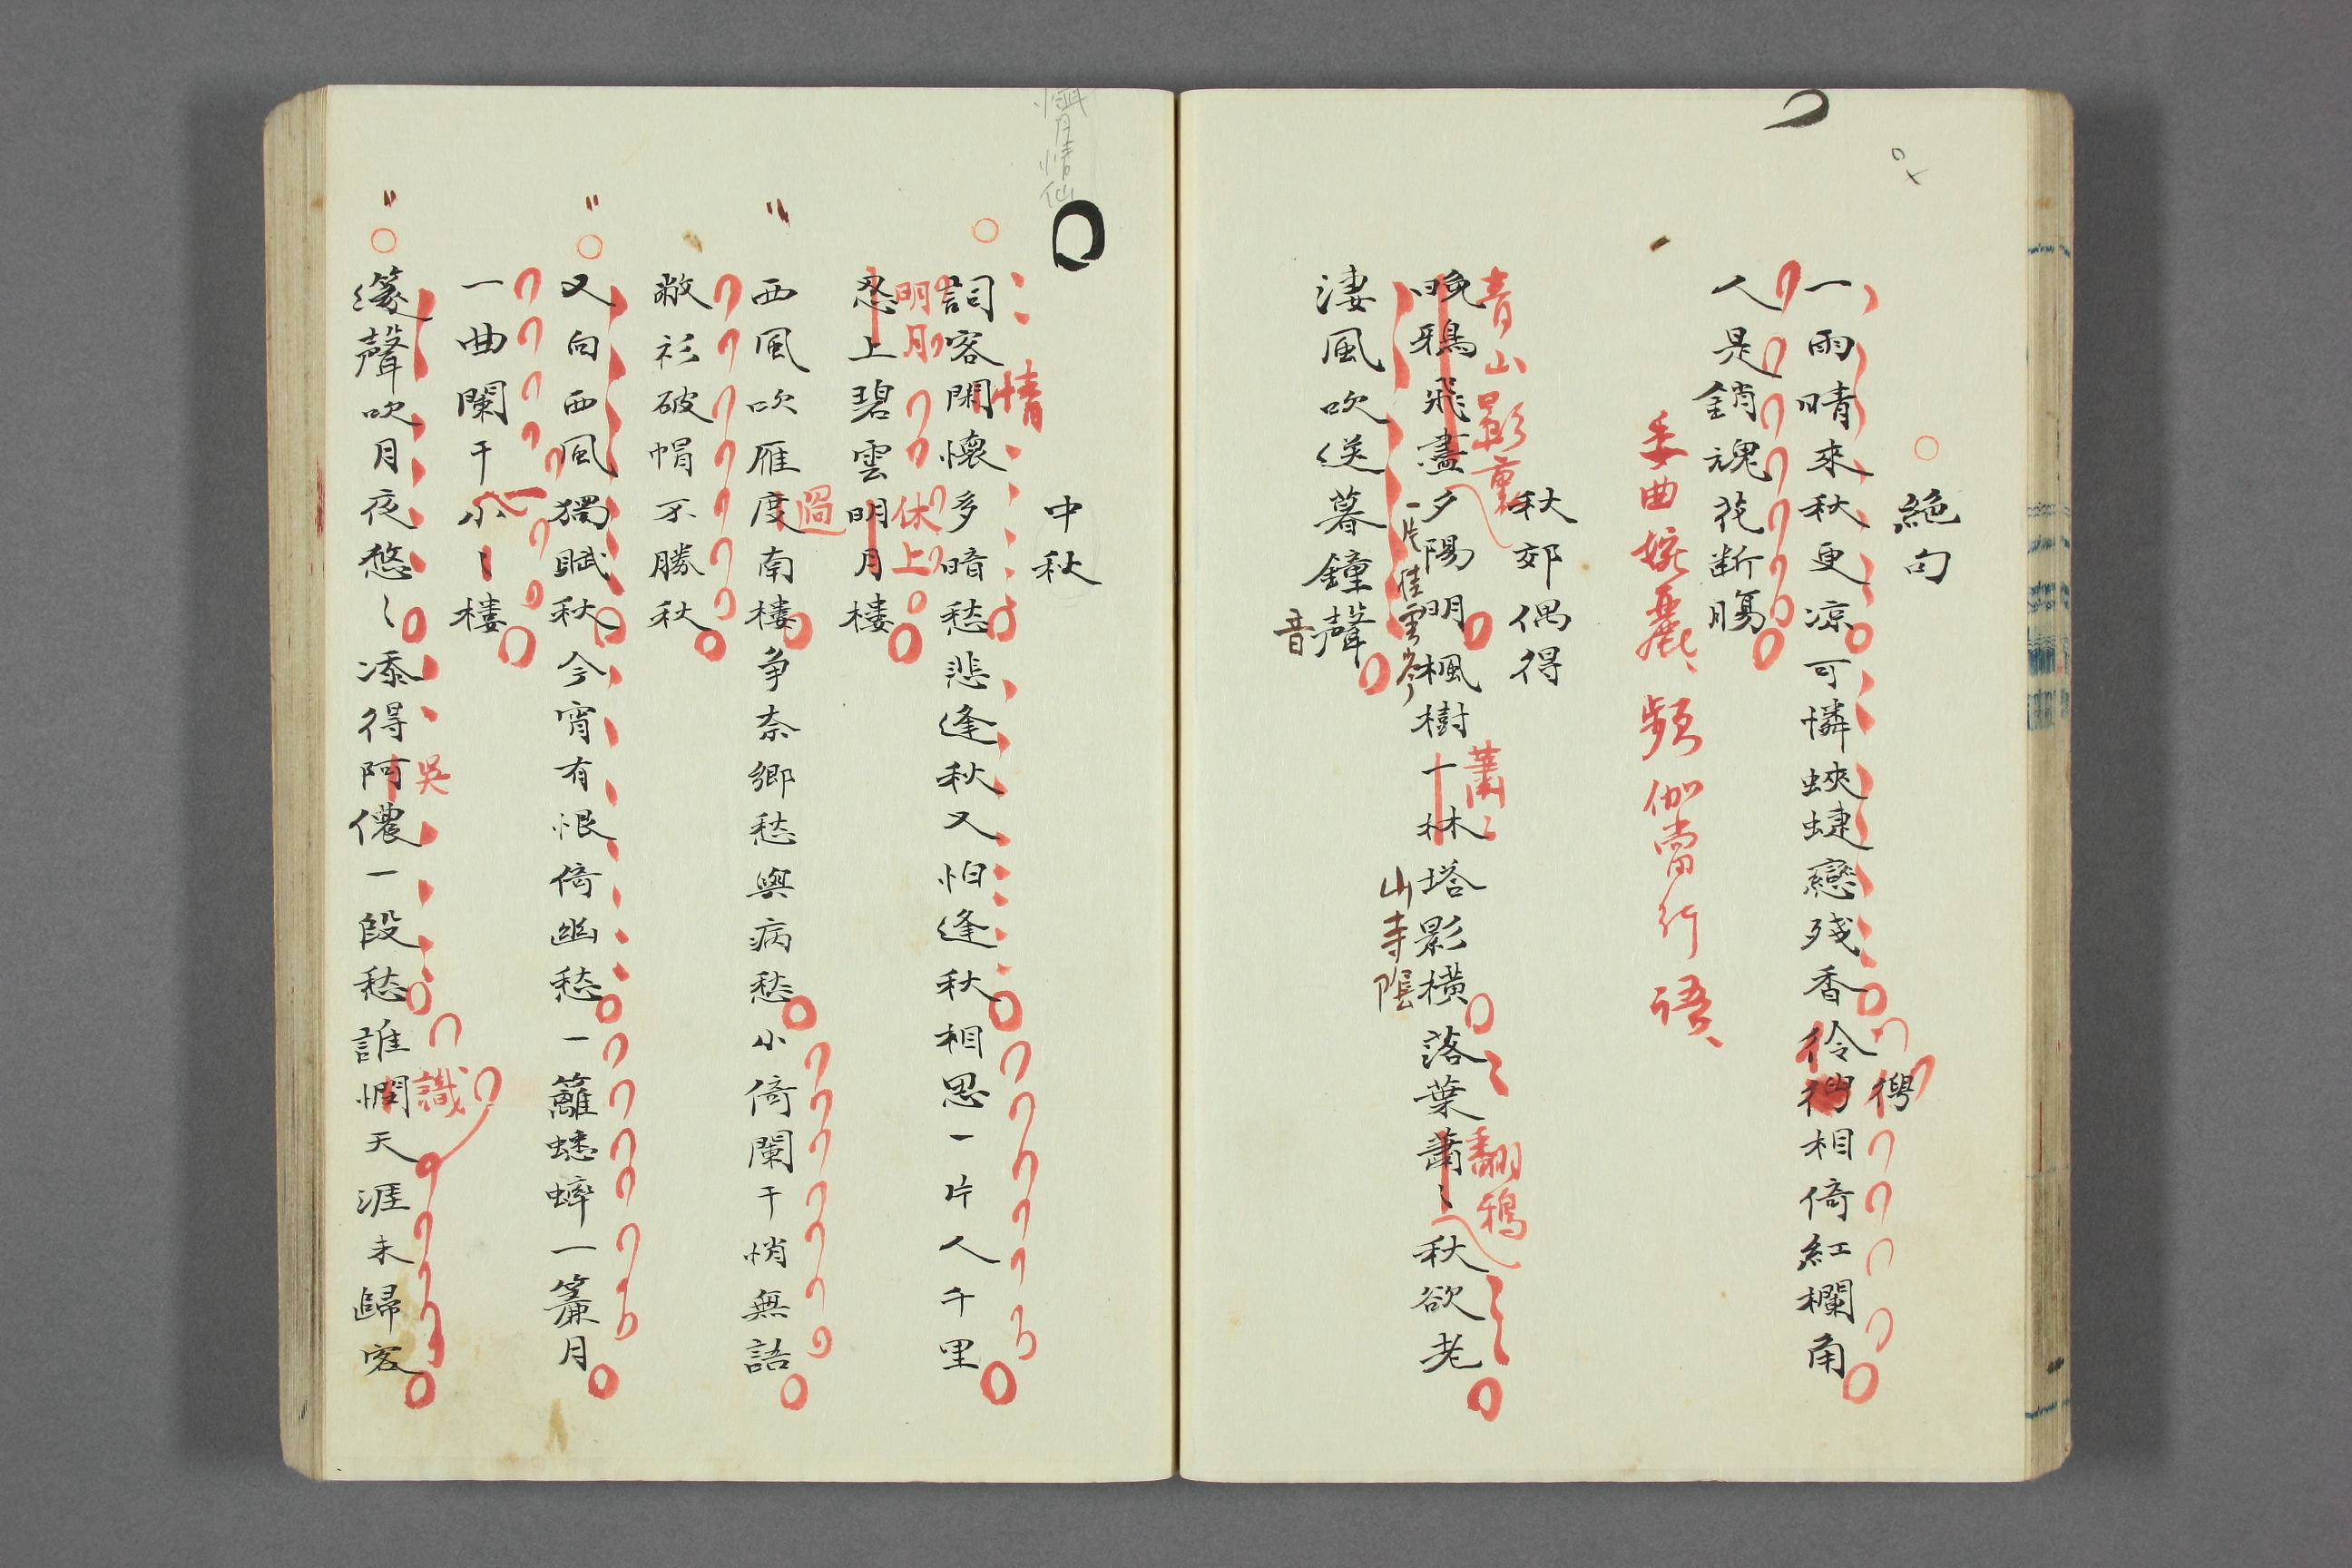 絶句
一雨晴來秋更凉可憐蛺蝶戀殘香伶俜相倚紅欄角
俜
人是銷魂花斷腸
委曲婉麗、頻伽當行語、
秋郊偶得
青山影裏
蕭〻
翻鴉
晩鴉飛盡夕陽明楓樹一林塔影橫落葉蕭〻秋欲老
一片
雲岑
山寺隱
淒風吹送暮鐘聲
音
懶月情仙
中秋
情
詞客閑懷多暗愁悲逢秋又怕逢秋相思一片人千里
明月
休上
忍上碧雲明月樓
過
西風吹雁度南樓爭奈鄉愁與病愁小倚闌干悄無語
敝衫破帽不勝秋
又向西風獨賦秋今宵有恨倚幽愁一籬蟋蟀一簾月
一曲闌干小〻樓
吳
識
篴聲吹月夜愁〻添得阿儂一段愁誰憫天涯未歸客